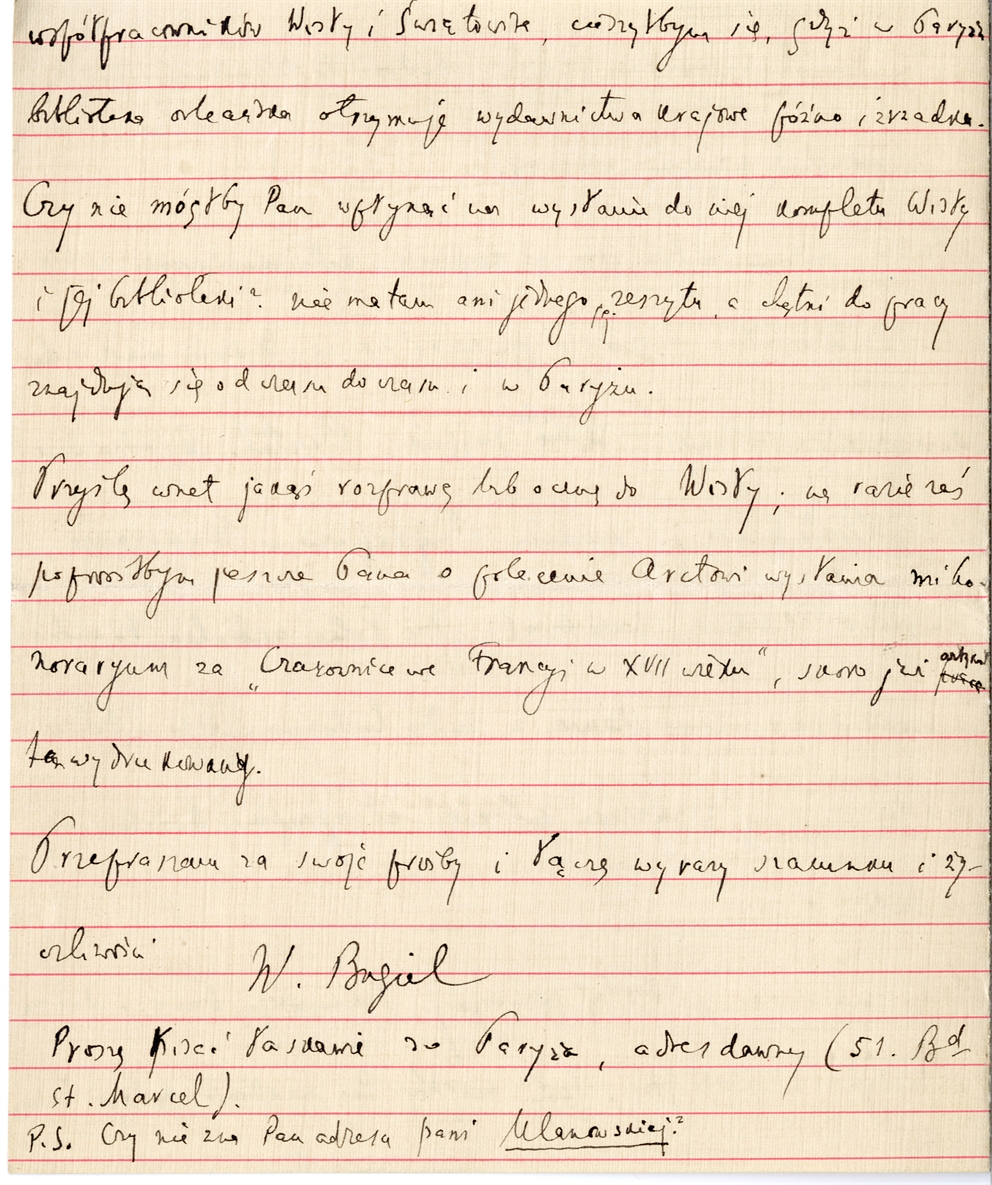 współpracowników Wisły i Światowita, cieszyłbym się, gdyż w Paryżu
biblioteka otrzymuje wydawnictwa krajowe późno i zrzadka.
Czy nie mógłby Pan wpłynąć na wysłanie do niej kompletu Wisły
i jej biblioteki? nie ma tam ani jednego jej zeszytu, a chętni do pracy
znajdują się od czasu do czasu i w Paryżu.
Przyślę wnet jakąś rozprawę lub ocenę do Wisły; na razie zaś
poprosiłbym jeszcze Pana o polecenie Arctowi wysłania mi ho-
noraryum za „Czarownice we Francyi w XVII wieku", skoro już artykuł
ten wydrukowany.
Przepraszam za swoje prośby i łączę wyrazy szacunku i ży-
czliwości
W. Bugiel
Proszę pisać łaskawie do Paryża, adres dawny (51. Bd
St. Marcel).
P.S. Czy nie zna Pan adresu pani Ulanowskiej?